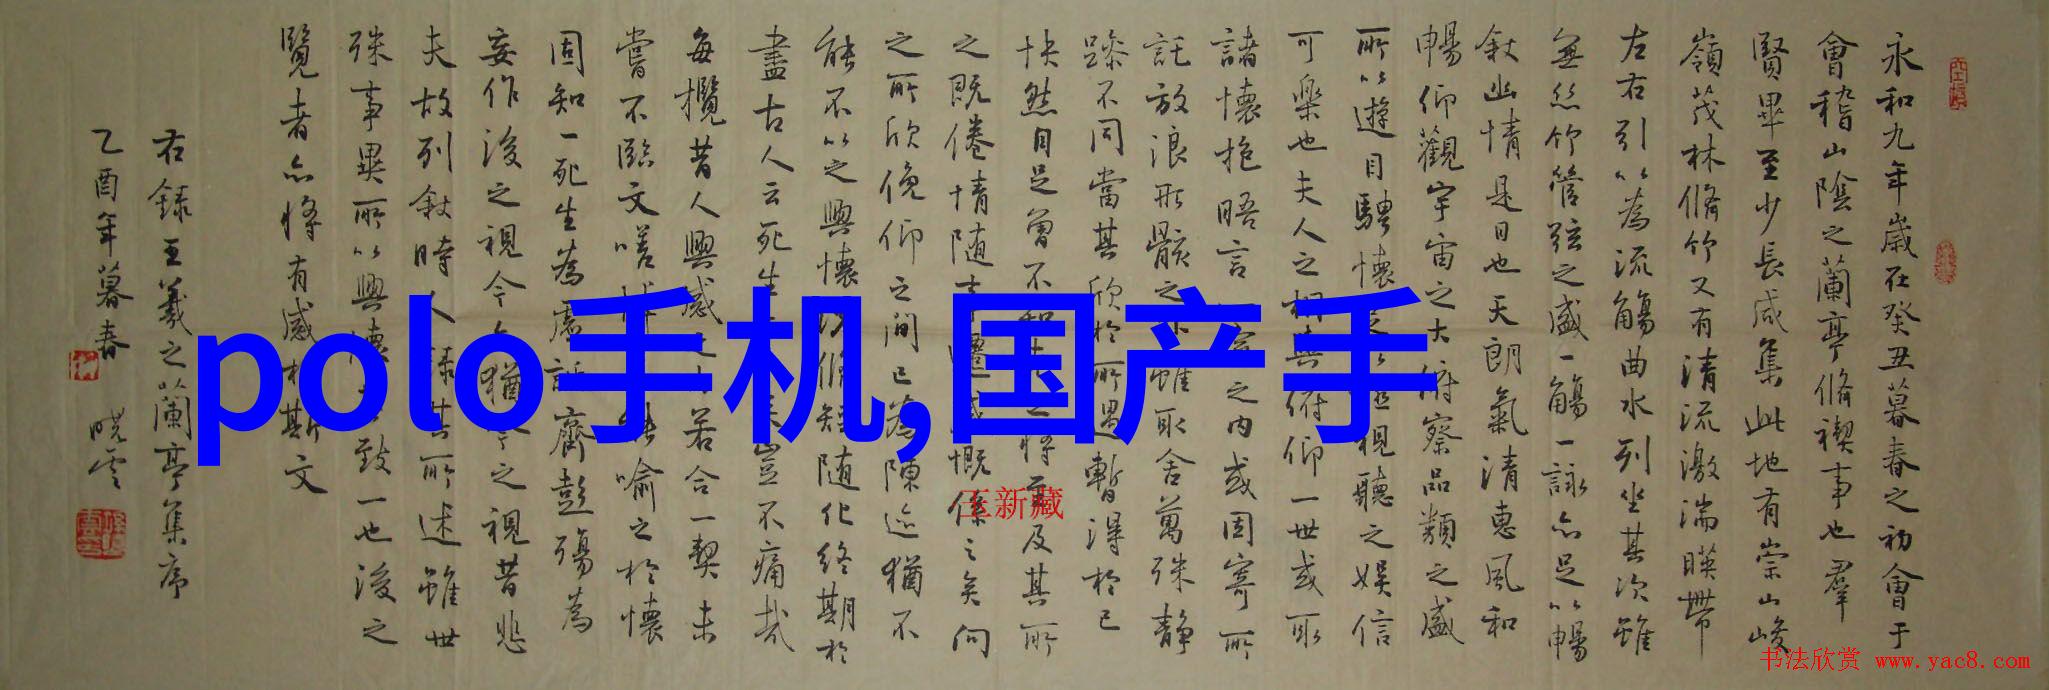 永和九年歲在癸丑暮春之初會于
會稽山陰之蘭亭脩禊事也羣
賢畢至少長咸集此地有崇山峻
嶺茂林脩竹又有清流激湍暎帶
左右引以為流觴曲水列坐其次雖
無絲竹管弦之盛一觴一詠亦足以暢
敘幽情是日也天朗氣清惠風和
暢仰觀宇宙之大俯察品類之盛
所以遊目騁懷足以極視聽之娛信
可樂也夫人之相與俯仰一世或取
諸懷抱晤言室之內或因寄所
託放浪形骸之外雖取舍萬殊静
躁不同當其欣於所遇暫得於己
快然自足曾不知老之將至及其所
之既倦情随事遷感慨係之矣向
之所欣俛仰之間已為陳迹猶不
能不以之興懷况脩短随化終期於
盡古人云死生矣豈不痛哉
每攬昔人興感之由若合一契未
嘗不臨文嗟悼能喻之於懷
固知一死生為虛誕齊彭殤為
妄作後之視今亦猶今之視昔悲
夫故列敘時人錄其所述雖世
殊事異所以興懷其致一也後之
覽者亦將有感於斯文
右錄王羲之蘭亭集序
乙酉年暮春 晓雲
polo手机,国产手
王新藏
书法欣赏 www.yac8.com